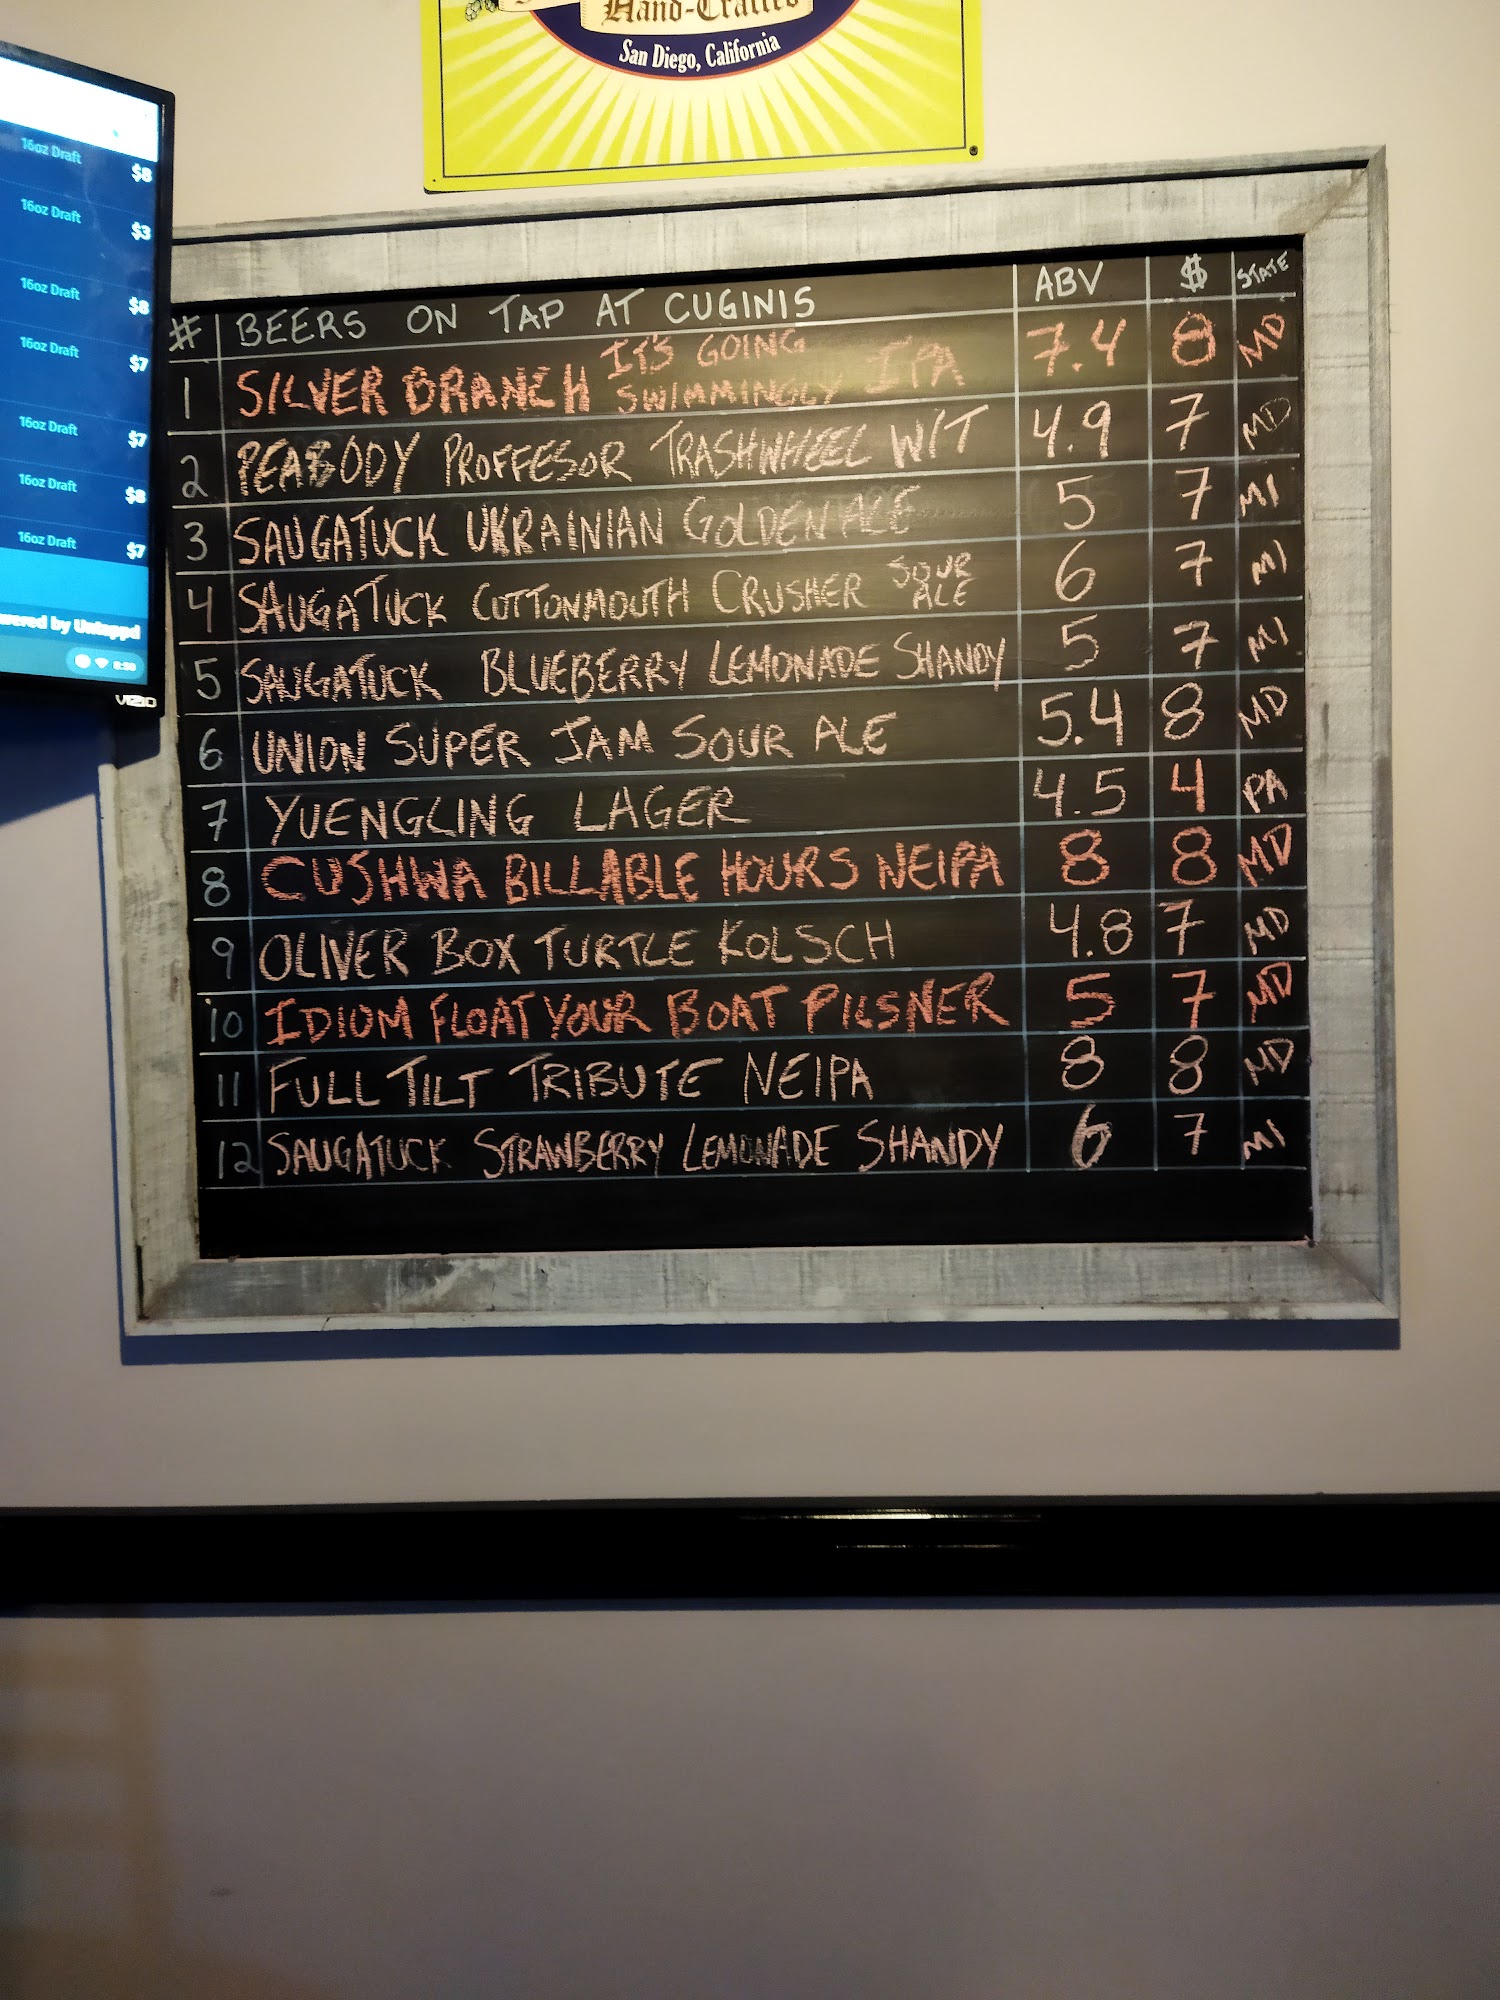 Hand-Crafted
San Diego, California
16oz Draft $8
16oz Draft $3
16oz Draft $8
16oz Draft $7
16oz Draft $7
16oz Draft $8
16oz Draft $7
wered by Untappd
8:50
VIZIO
# BEERS ON TAP AT CUGINIS ABV $ STATE
1 SILVER BRANCH IT'S GOING SWIMMINGLY IPA 7.4 8 MD
2 PEABODY PROFFESOR TRASHWHEEL WIT 4.9 7 MD
3 SAUGATUCK UKRAINIAN GOLDEN ALE 5 7 MI
4 SAUGATUCK COTTONMOUTH CRUSHER SOUR ALE 6 7 MI
5 SAUGATUCK BLUEBERRY LEMONADE SHANDY 5 7 MI
6 UNION SUPER JAM SOUR ALE 5.4 8 MD
7 YUENGLING LAGER 4.5 4 PA
8 CUSHWA BILLABLE HOURS NEIPA 8 8 MD
9 OLIVER BOX TURTLE KOLSCH 4.8 7 MD
10 IDIOM FLOAT YOUR BOAT PILSNER 5 7 MD
11 FULL TILT TRIBUTE NEIPA 8 8 MD
12 SAUGATUCK STRAWBERRY LEMONADE SHANDY 6 7 MI